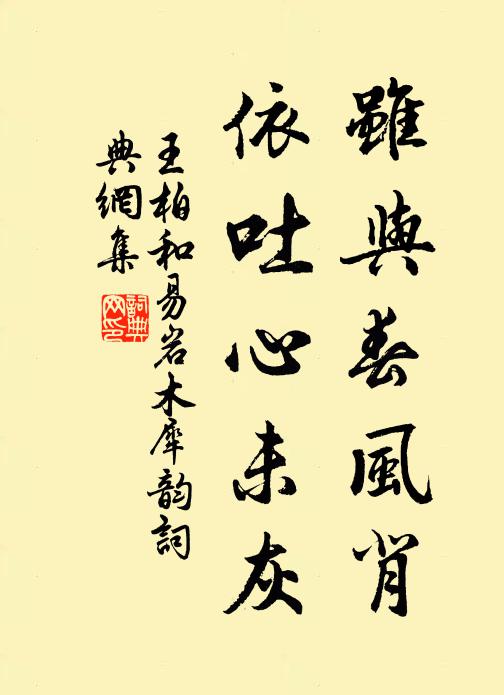 雖與春風背
依吐心未灰
王柏和易岩木犀韵詞
典網集
詞典网印